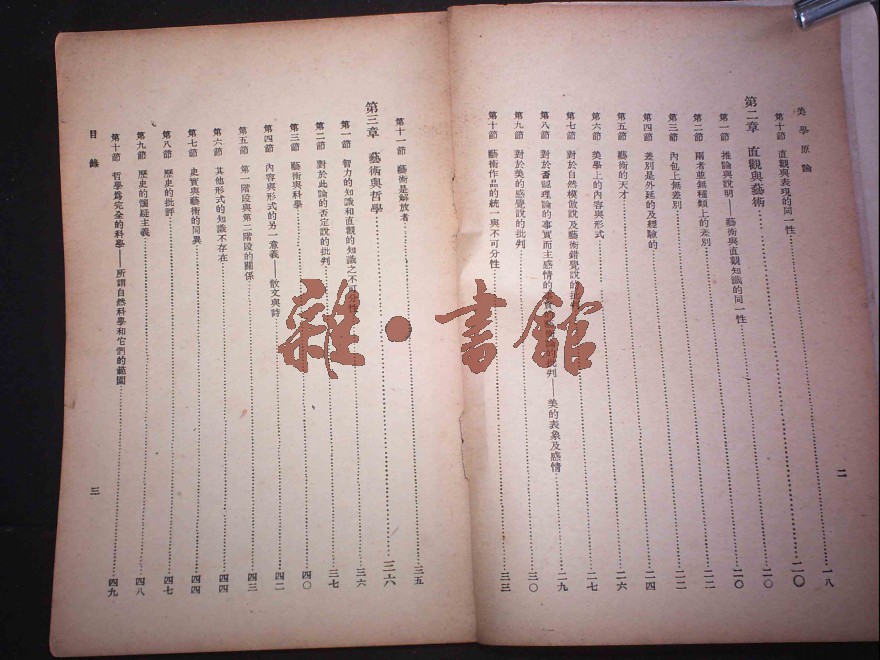 美學原論
第十節　直觀與表現的同一性……一八
第二章　直觀與藝術……二〇
第一節　推論與說明——藝術與直觀知識的同一性……二〇
第二節　兩者並無種類上的差別……二二
第三節　內包上無差別……二二
第四節　差別是外延的及經驗的……二四
第五節　藝術的天才……二六
第六節　美學上的內容與形式……二七
第七節　對於自然模倣說及藝術錯覺說的批判……二九
第八節　對於否認理論的事實而主感情的……的批判——美的表象及感情
第九節　對於美的感覺說的批判……三〇
第十節　藝術作品的統一與不可分性……三三
二
第十一節　藝術是解放者……三五
第三章　藝術與哲學……三六
第一節　智力的知識和直觀的知識之不可分性……三六
第二節　對於此論的否定說的批判……三七
第三節　藝術與科學……四〇
第四節　內容與形式的另一意義——散文與詩……四二
第五節　第一階段與第二階段的關係……四三
第六節　其他形式的知識不存在……四四
第七節　史實與藝術的同異……四四
第八節　歷史的批評……四七
第九節　歷史的懷疑主義……四八
第十節　哲學爲完全的科學——所謂自然科學和它們的範圍……四九
目錄
三
雜·書館